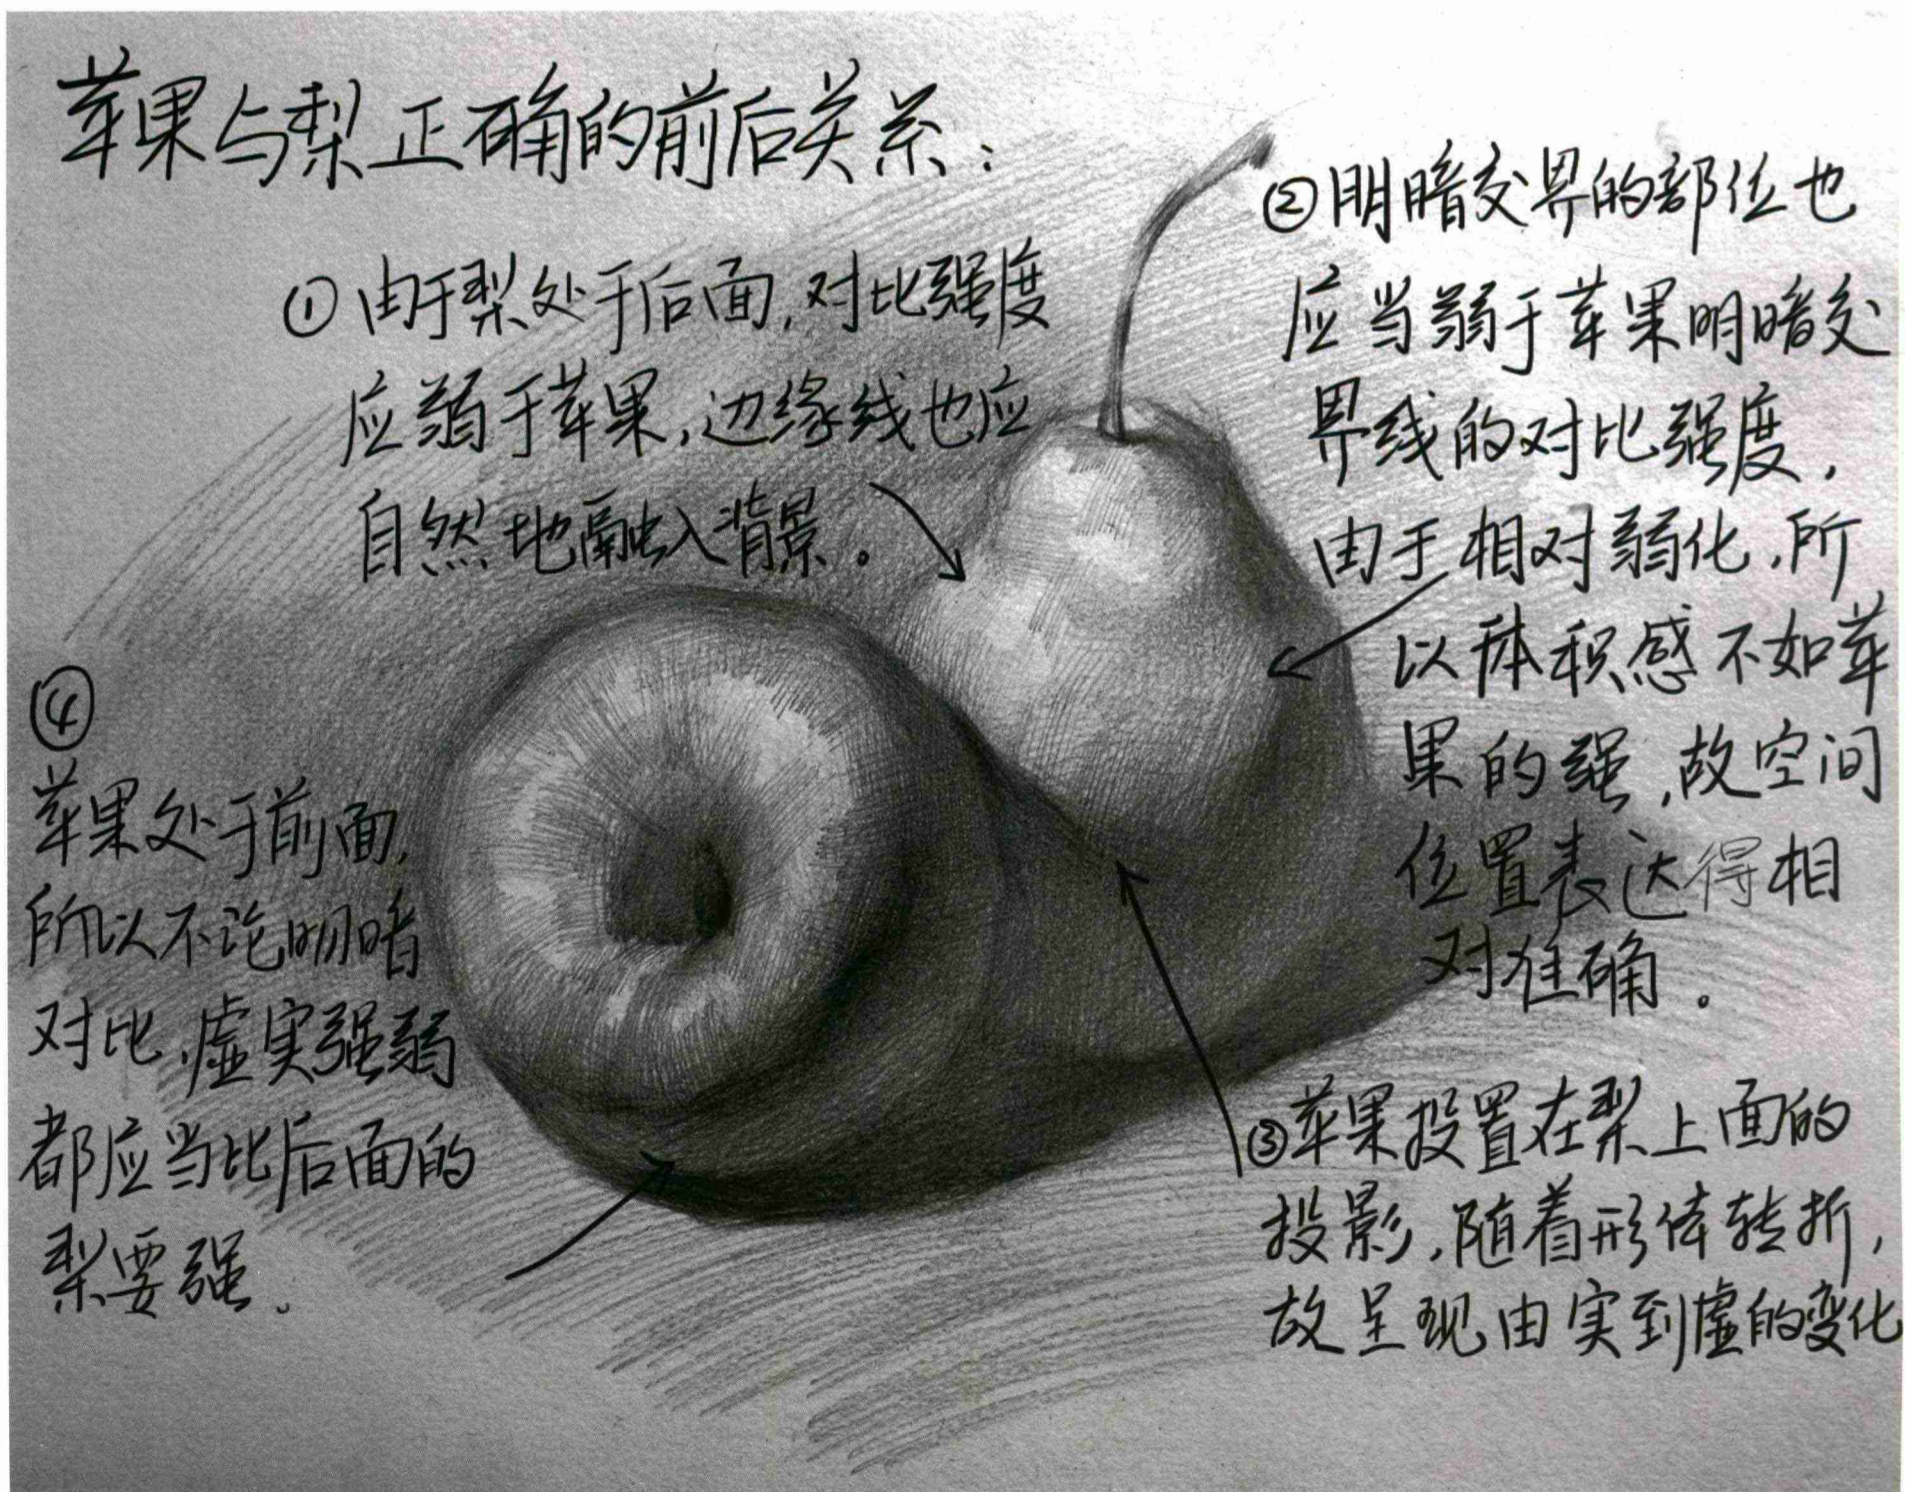 苹果与梨正确的前后关系：
①由于梨处于后面，对比强度
应弱于苹果，边缘线也应
自然地融入背景。
②明暗交界的部位也
应当弱于苹果明暗交
界线的对比强度，
由于相对弱化，所
以体积感不如苹
果的强，故空间
位置表达得相
对准确。
③苹果投置在梨上面的
投影，随着形体转折，
故呈现由实到虚的变化
④
苹果处于前面，
所以不论明暗
对比，虚实强弱
都应当比后面的
梨要强。